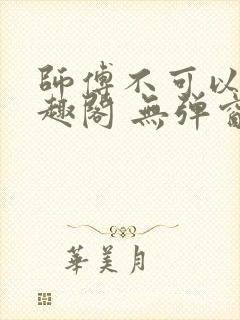 師傅不可以
趣閣 無彈窗
華美月